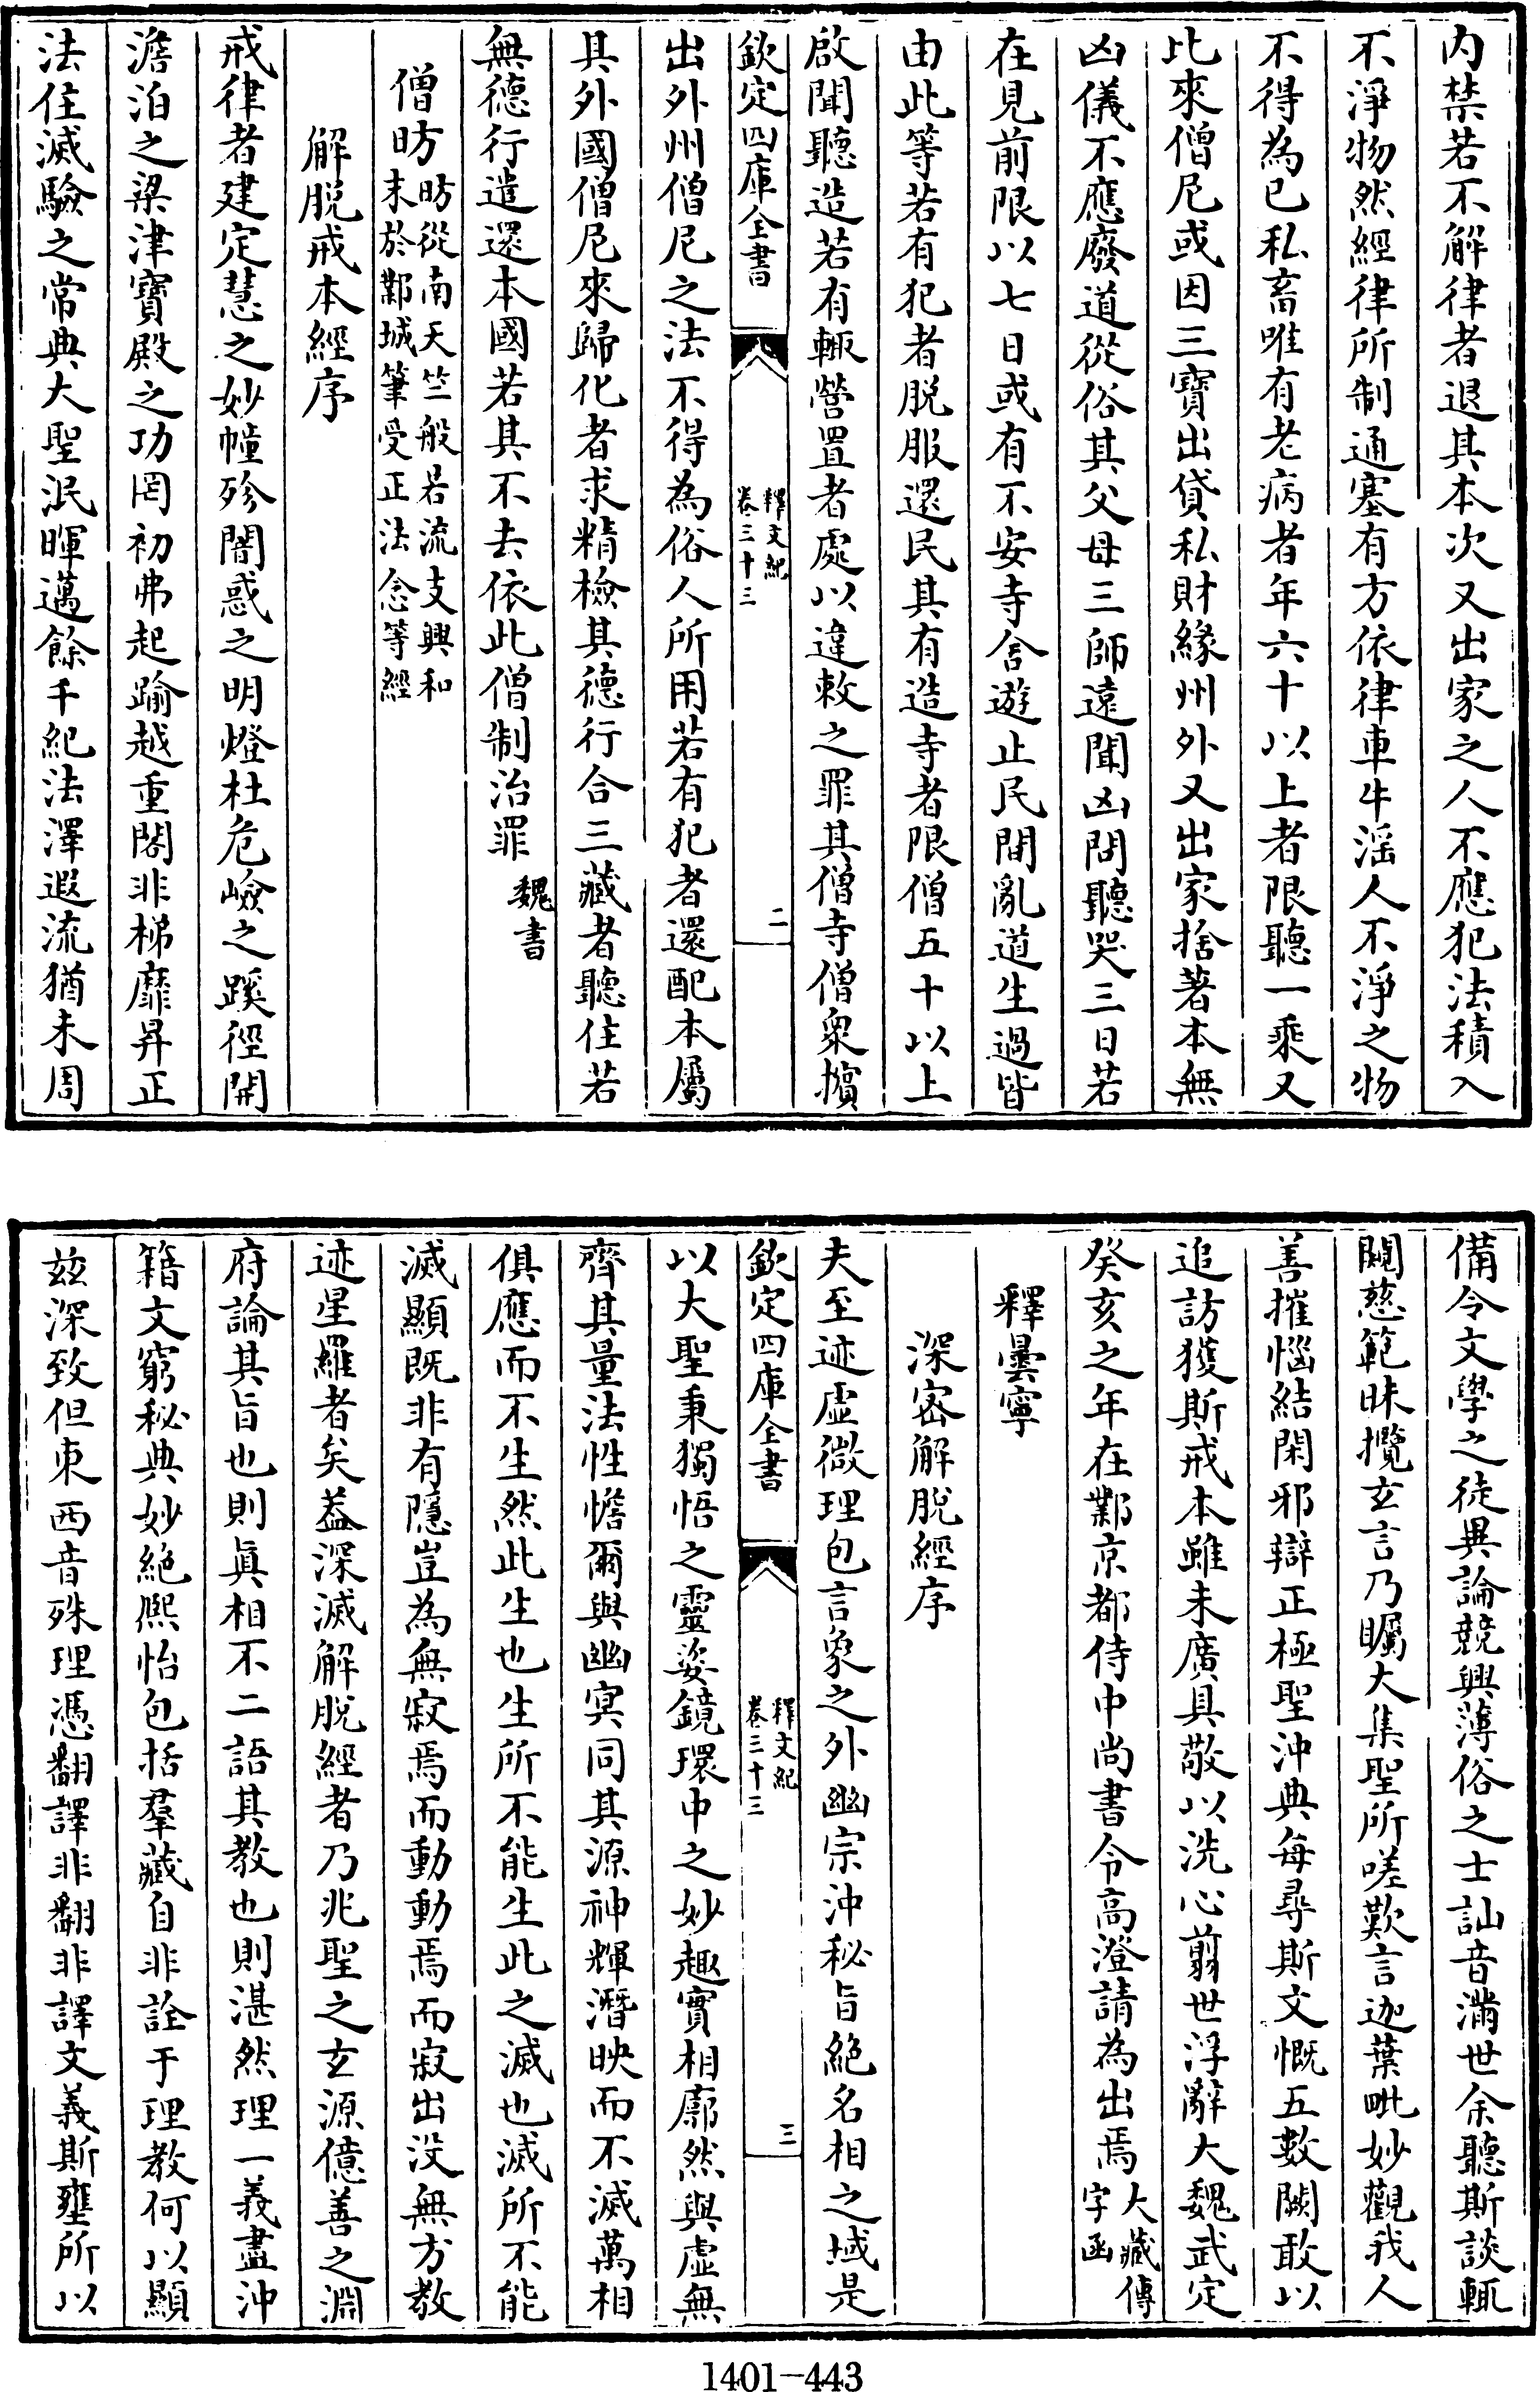 內禁若不解律者退其本次又出家之人不應犯法積入
不淨物然經律所制通塞有方依律車牛淫人不淨之物
不得為已私畜唯有老病者年六十以上者限聽一乘又
比來僧尼或因三寶出貸私財緣州外又出家捨著本無
凶儀不應廢道從俗其父母三師遠聞凶問聽哭三日若
在見前限以七日或有不安寺舍遊止民間亂道生過皆
由此等若有犯者脱服還民其有造寺者限僧五十以上
啟聞聽造若有輒營置者處以違敕之罪其僧寺僧衆擯
欽定四庫全書
釋文紀
卷三十三
二
出外州僧尼之法不得為俗人所用若有犯者還配本屬
其外國僧尼來歸化者求精檢其德行合三藏者聽住若
無德行遣還本國若其不去依此僧制治罪
魏書
僧昉
昉從南天竺般若流支興和
末於鄴城筆受正法念等經
解脱戒本經序
戒律者建定慧之妙幢殄闇惑之明燈杜危嶮之蹊徑開
澹泊之梁津寶殿之功罔初弗起踰越重閣非梯靡昇正
法住滅驗之常典大聖泯暉邁餘千紀法澤遐流猶未周
備令文學之徒異論競興薄俗之士訕音滿世余聽斯談輒
闚慈範昧攬玄言乃矚大集聖所嗟歎言迦葉毗妙觀我人
善摧惱結閑邪辯正極聖沖典每尋斯文慨五數闕敢以
追訪獲斯戒本雖未廣具敬以洗心翦世浮辭大魏武定
癸亥之年在鄴京都侍中尚書令高澄請為出焉
大藏傳
字函
釋曇寧
深密解脫經序
夫至迹虛微理包言象之外幽宗沖秘旨絶名相之域是
欽定四庫全書
釋文紀
卷三十三
三
以大聖秉獨悟之靈姿鏡環中之妙趣實相廓然與虛無
齊其量法性憺爾與幽冥同其源神輝潛映而不滅萬相
俱應而不生然此生也生所不能生此之滅也滅所不能
滅顯既非有隱豈為無寂焉而動動焉而寂出没無方教
迹星羅者矣葢深滅解脱經者乃兆聖之玄源億善之淵
府論其旨也則眞相不二語其教也則湛然理一義盡沖
籍文窮秘典妙絶熙怡包括羣藏自非詮于理教何以顯
兹深致但東西音殊理憑翻譯非翻非譯文義斯壅所以
1401-443